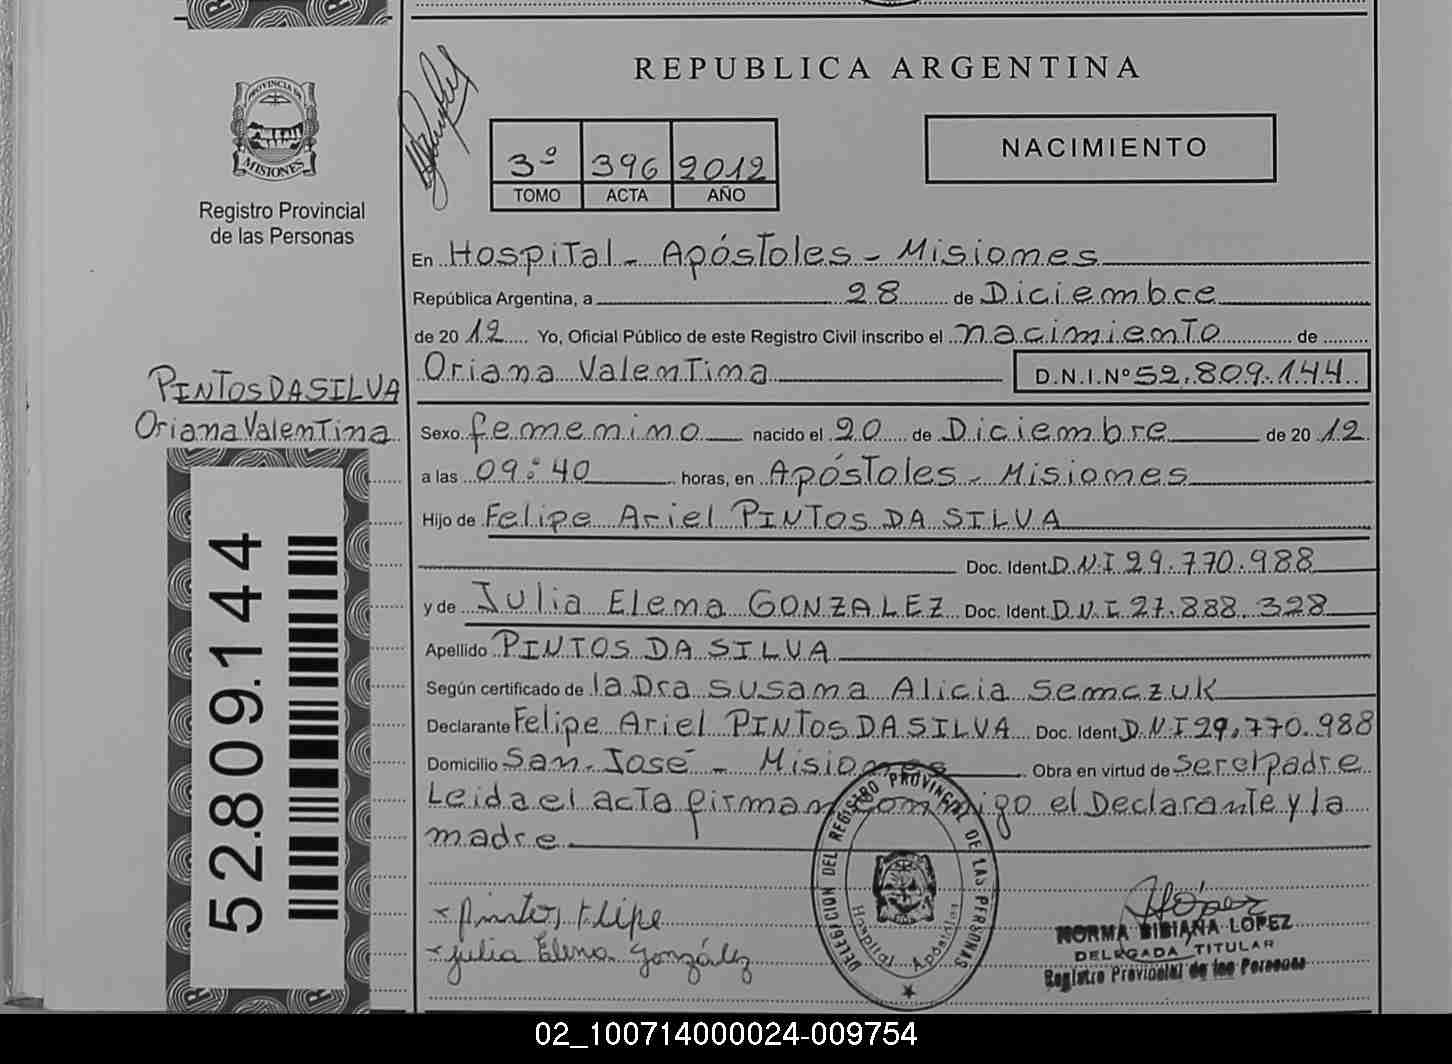 PROVINCIA DE
MISIONES
Registro Provincial
de las Personas
REPUBLICA ARGENTINA
3º 396 2012
TOMO ACTA AÑO
NACIMIENTO
En Hospital - Apóstoles - Misiones
República Argentina, a 28 de Diciembre
de 2012 Yo, Oficial Público de este Registro Civil inscribo el nacimiento de
Oriana Valentina D.N.I.Nº 52.809.144
PINTOS DA SILVA
Oriana Valentina
Sexo femenino nacido el 20 de Diciembre de 2012
a las 09:40 horas, en Apóstoles - Misiones
Hijo de Felipe Ariel PINTOS DA SILVA
Doc. Ident. D.N.I 29.770.988
y de Julia Elena GONZALEZ Doc. Ident. D.N.I. 27.888.328
Apellido PINTOS DA SILVA
Según certificado de la Dra Susana Alicia Semczuk
Declarante Felipe Ariel PINTOS DA SILVA Doc. Ident. D.N.I 29.770.988
Domicilio San José - Misiones Obra en virtud de ser el padre
Leida el acta firman conmigo el Declarante y la
madre
52.809.144
Pintos, Felipe
Julia Elena González
DELEGACION DEL REGISTRO PROVINCIAL DE LAS PERSONAS
Hospital Apóstoles
López
NORMA BIBIANA LOPEZ
DELEGADA TITULAR
Registro Provincial de las Personas
02_100714000024-009754